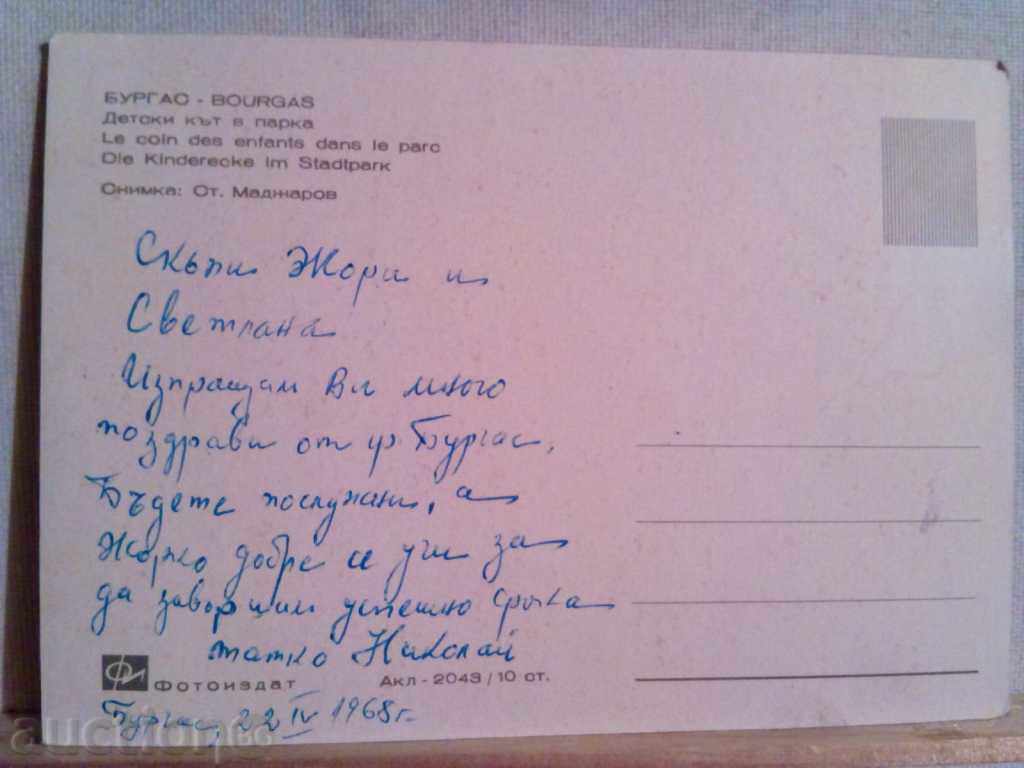 БУРГАС - BOURGAS
Детски кът в парка
Le coin des enfants dans le parc
Die Kinderecke im Stadtpark
Снимка: Ст. Маджаров
Скъпи Жори и
Светлана
Изпращам Ви много
поздрави от гр Бургас,
Бъдете послушани, а
Жорко добре се учи за
да завършиш успешно срока
татко Николай
ФИ Фотоиздат Акл - 2043/10 ст.
Бургас, 22 IV 1968 г.
auction.bg